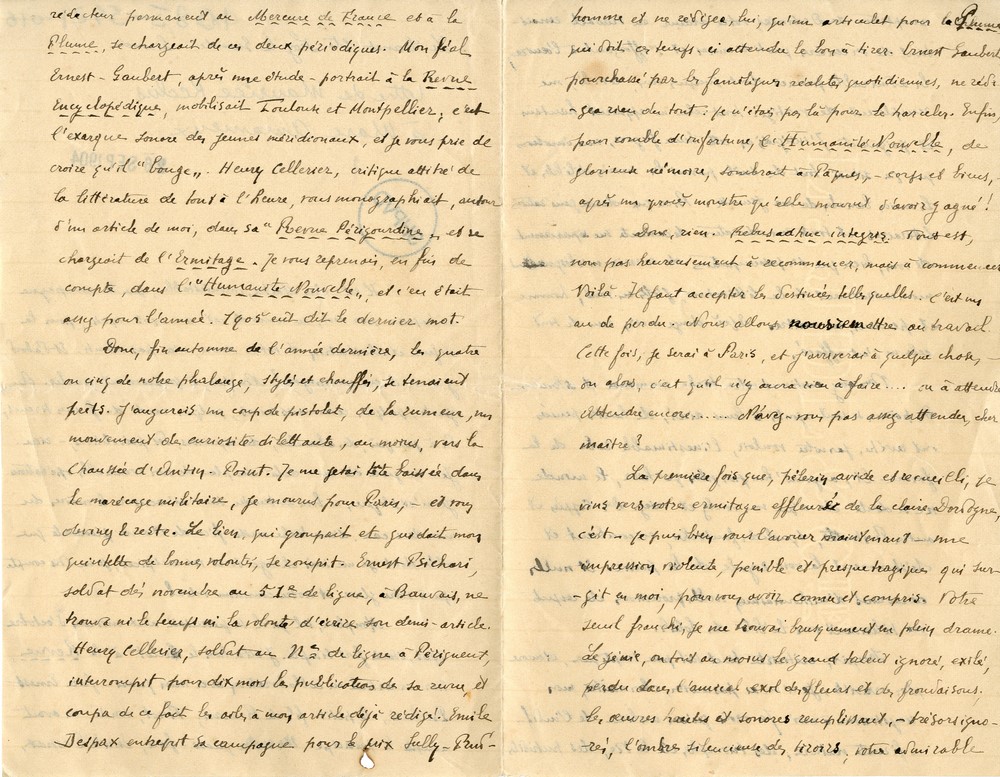 rédacteur permanent au Mercure de France et à la
Plume, se chargeait de ces deux périodiques. Mon féal
Ernest-Gaubert, après une étude-portrait à la Revue
Encyclopédique, mobilisait Toulouse et Montpellier, c'est
l'exarque sonore des jeunes méridionaux, et je vous prie de
croire qu'il "bouge". Henry Cellerier, critique attitré de
la littérature de tout à l'heure, vous monographiait, autour
d'un article de moi, dans sa "Revue Périgourdine", et se
chargeait de l'Ermitage. Je vous reprenais, en fin de
compte, dans l'"Humanité Nouvelle", et c'en était
assez pour l'année. 1905 eût dit le dernier mot.
Donc, fin automne de l'année dernière, les quatre
ou cinq de notre phalange, stylés et chauffés, se tenaient
prêts. J'augurais un coup de pistolet, de la rumeur, un
mouvement de curiosité dilettante, au moins, vers la
Chaussée d'Antin. Point. Je me jetai tête baissée dans
le marécage militaire, je mourus pour Paris, - et vous
devinez le reste. Le lien qui groupait et guidait mon
quintette de bonnes volontés, se rompit. Ernest Psichari,
soldat dès novembre au 51e de ligne, à Beauvais, ne
trouva ni le temps ni la volonté d'écrire son demi-article.
Henry Cellerier, soldat au de ligne à Périgueux,
interrompit pour dix mois la publication de sa revue, et
coupa de ce fait les ailes à mon article déjà rédigé. Emile
Despax entreprit sa campagne pour le prix Sully-Prud-
homme et ne rédigea, lui, qu'un articulet pour la Plume
qui doit, ces temps-ci attendre le bon à tirer. Ernest Gaubert
pourchassé par les faméliques réalités quotidiennes, ne rédi-
-gea rien du tout : je n'étais pas là pour le harceler. Enfin,
pour comble d'infortune, l'Humanité Nouvelle, de
glorieuse mémoire, sombrait à Pâques, - corps et biens, -
après un procès monstre qu'elle mourut d'avoir gagné !
Donc, rien. Rebus adhuc integris. Tout est,
non pas heureusement à recommencer, mais à commencer
Voilà. Il faut accepter les destinées telles quelles. C'est un
an de perdu. Nous allons nous remettre au travail.
Cette fois, je serai à Paris, et j'arriverai à quelque chose, -
ou alors, c'est qu'il n'y aura rien à faire.... ou à attendre
Attendre encore...... N'avez-vous pas assez attendu, cher
maître ?
La première fois que, pèlerin avide et recueilli, je
vins vers votre ermitage effleuré de la claire Dordogne,
c'est - je puis bien vous l'avouer maintenant - une
impression violente, pénible et presque tragique qui sur-
-git en moi, pour vous avoir connu et compris. Votre
seuil franchi, je me trouvai brusquement en plein drame.
Le génie, ou tout au moins le grand talent ignoré, exilé,
perdu dans l'amical exil des fleurs et des frondaisons.
Les œuvres hautes et sonores remplissant, - trésors igno-
-rés, l'ombre silencieuse des tiroirs, votre admirable